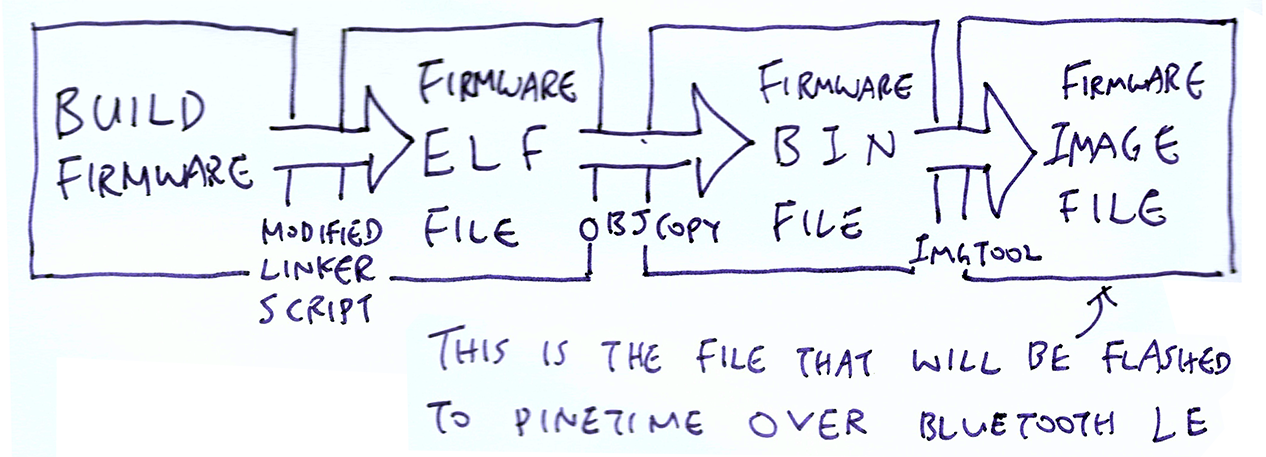 BUILD
FIRMWARE
MODIFIED
LINKER
SCRIPT
FIRMWARE
ELF
FILE
OBJCOPY
FIRMWARE
BIN
FILE
IMGTOOL
FIRMWARE
IMAGE
FILE
THIS IS THE FILE THAT WILL BE FLASHED
TO PINETIME OVER BLUETOOTH LE